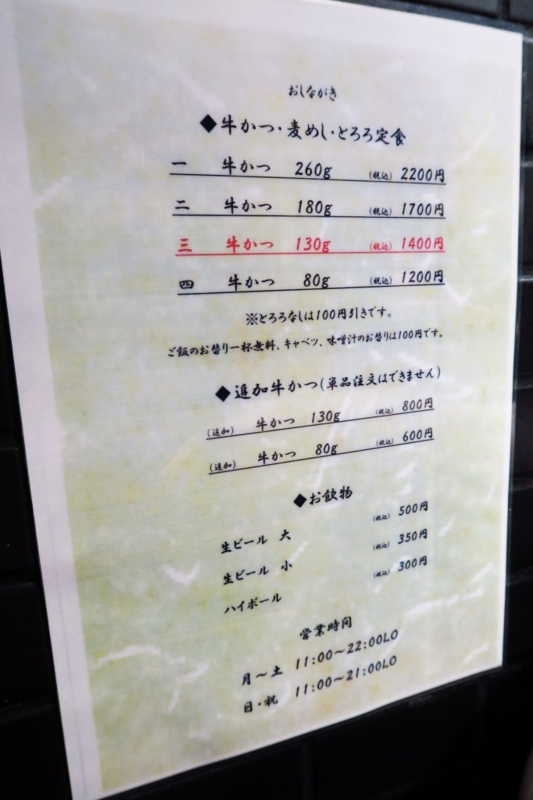 おしながき
◆牛かつ・麦めし・とろろ定食
一 牛かつ 260g (税込) 2200円
二 牛かつ 180g (税込) 1700円
三 牛かつ 130g (税込) 1400円
四 牛かつ 80g (税込) 1200円
※とろろなしは100円引きです。
ご飯のお替り一杯無料、キャベツ、味噌汁のお替りは100円です。
◆追加牛かつ(単品注文はできません)
(追加) 牛かつ 130g (税込) 800円
(追加) 牛かつ 80g (税込) 600円
◆お飲物
生ビール 大 (税込) 500円
生ビール 小 (税込) 350円
ハイボール (税込) 300円
営業時間
月~土 11:00~22:00LO
日・祝 11:00~21:00LO